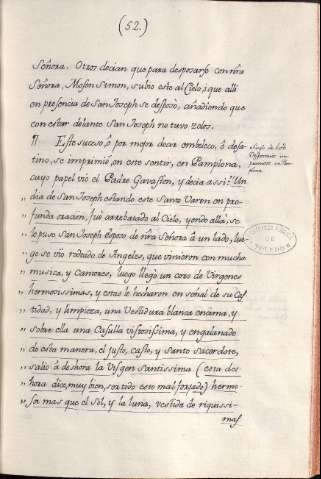 (52.)
Señora. Otros decian que para desposarse con nrā
Señora, Mosen Simon, subio este al Cielo, i que alli
en presencia de San Joseph se desposò, añadiendo que
con estar delante San Joseph no tuvo zelos.
¶ Este suceso, ò por mejor decir embeleco, ò desa-
tino, se imprimiò, en este sentir, en Pamplona,
cuyo papel viò el Padre Gavaston, y decia assi: Un
" dia de San Joseph estando este Santo Varon en pro-
" funda oracion, fuè arrebatado al Cielo, yendo allà, se
" le puso San Joseph Esposo de nrā Señora à un lado, lue-
" go se viò rodeado de Angeles, que vinieron con mucha
" musica, y Cantores, luego llegò un coro de Virgenes
" hermosissimas, y estas le hecharon en señal de su Cas-
" tidad, y limpieza, una Vestidura blanca encima, y
" sobre ella una Casulla vistosissima, y engalanado
" de esta manera, el justo, casto, y Santo Sacerdote,
" saliò à deshora la Virgen Santissima (esta des-
" hora dice, muy bien, sentido este mal forjado) hermo-
" sa mas que el Sol, y la luna, vestida de riquissi-
mas